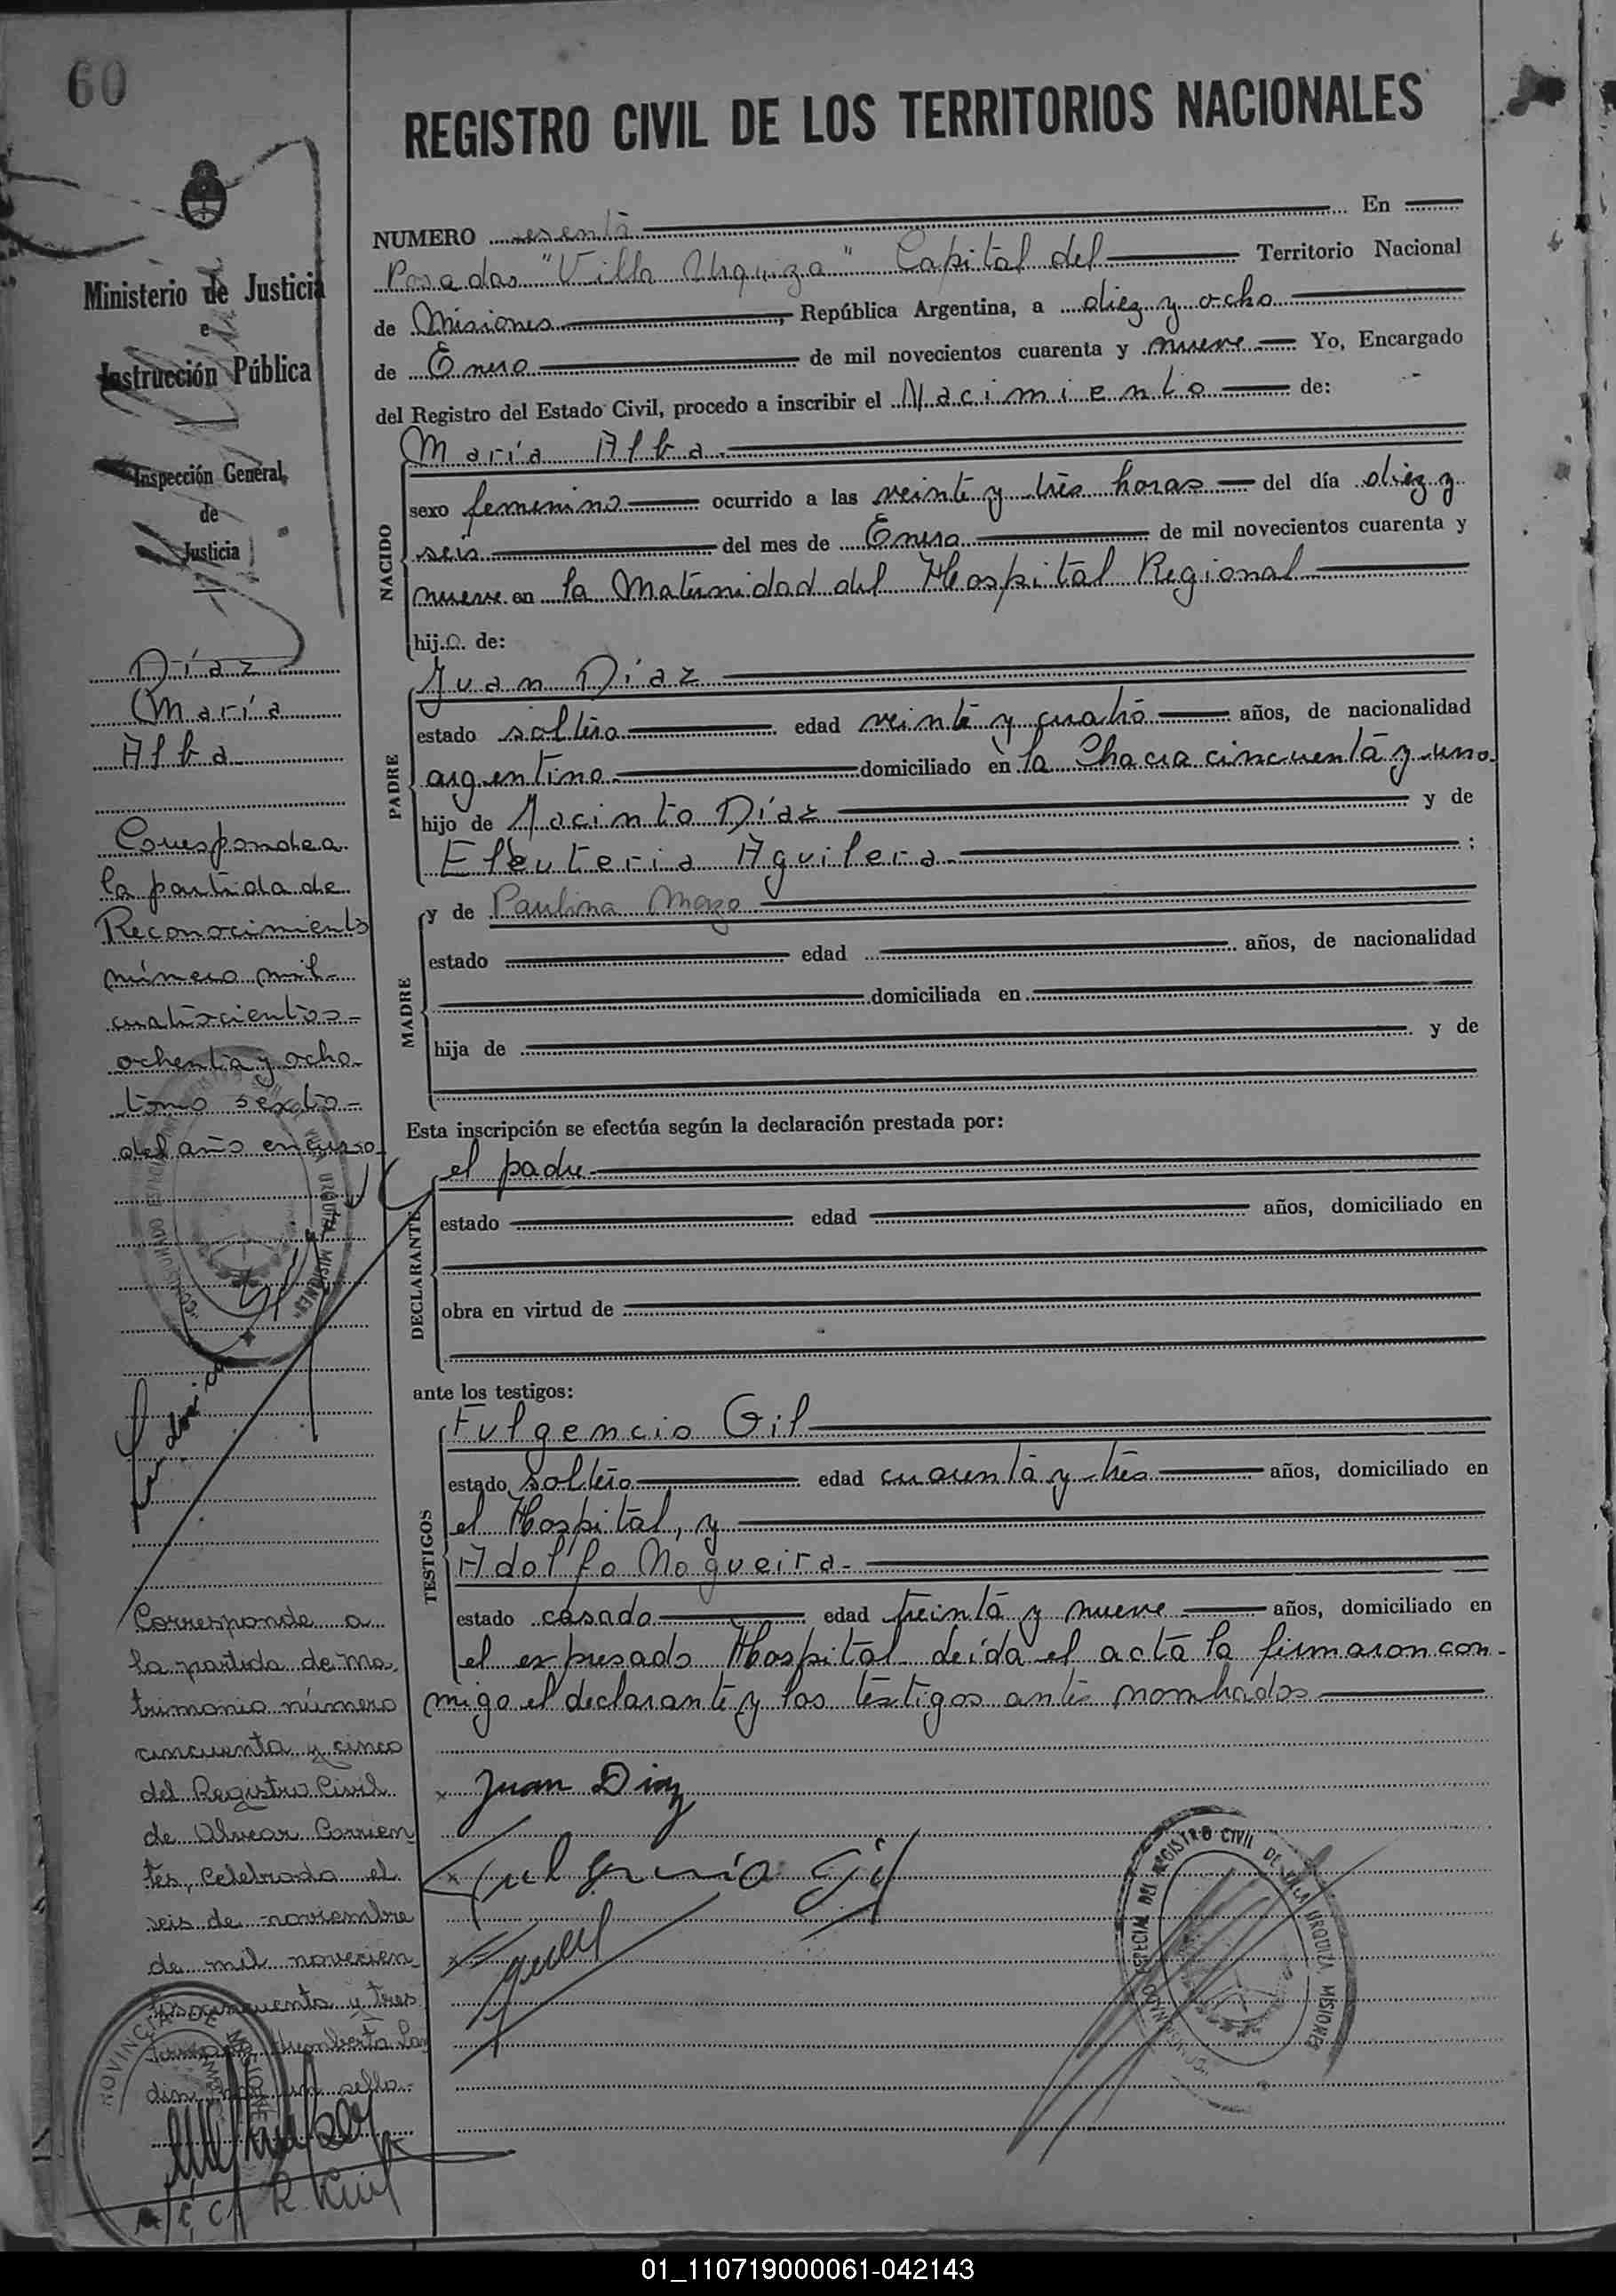 60
REGISTRO CIVIL DE LOS TERRITORIOS NACIONALES
Ministerio de Justicia
e
Instrucción Pública
Inspección General
de
Justicia
Díaz
María
Alba
Corresponde a
la partida de
Reconocimiento
número mil
cuatrocientos
ochenta y ocho
tomo sexto
del año en curso
Corresponde a
la partida de ma
trimonio número
cincuenta y cinco
del Registro Civil
de Alvear Corrien
tes, celebrado el
seis de noviembre
de mil novecien
tos cincuenta y tres
Humberto
sello
NUMERO sesenta En
Posadas "Villa Urquiza" Capital del Territorio Nacional
de Misiones, República Argentina, a diez y ocho
de Enero de mil novecientos cuarenta y nueve Yo, Encargado
del Registro del Estado Civil, procedo a inscribir el Nacimiento de:
NACIDO
María Alba
sexo femenino ocurrido a las veinte y tres horas del día diez y
seis del mes de Enero de mil novecientos cuarenta y
nueve en la Maternidad del Hospital Regional
hija de:
PADRE
Juan Díaz
estado soltero edad veinte y cuatro años, de nacionalidad
argentino domiciliado en la Chacra cincuenta y uno
hijo de Jacinto Díaz y de
Eleuteria Aguilera ;
MADRE
y de Paulina Mazo
estado edad años, de nacionalidad
domiciliada en
hija de y de
Esta inscripción se efectúa según la declaración prestada por:
DECLARANTE
el padre
estado edad años, domiciliado en
obra en virtud de
ante los testigos:
TESTIGOS
Fulgencio Gil
estado soltero edad cuarenta y tres años, domiciliado en
el Hospital, y
Adolfo Nogueira
estado casado edad treinta y nueve años, domiciliado en
el expresado Hospital leída el acta la firmaron con-
migo el declarante y los testigos antes nombrados
Juan Diaz
Fulgencio Gil
REGISTRO CIVIL DE VILLA URQUIZA MISIONES
PROVINCIA DE MISIONES
01_110719000061-042143